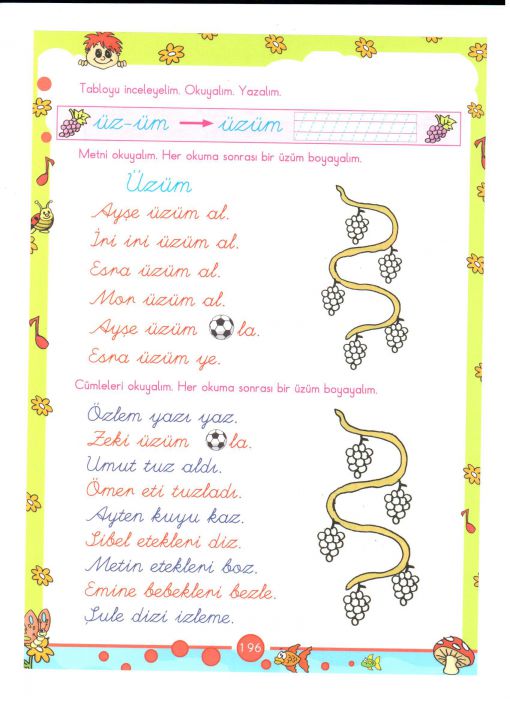 Tabloyu inceleyelim. Okuyalım. Yazalım.
üz-üm → üzüm
Metni okuyalım. Her okuma sonrası bir üzüm boyayalım.
Üzüm
Ayşe üzüm al.
İri iri üzüm al.
Esra üzüm al.
Mor üzüm al.
Ayşe üzüm la.
Esra üzüm ye.
Cümleleri okuyalım. Her okuma sonrası bir üzüm boyayalım.
Özlem yazı yaz.
Zeki üzüm la.
Umut tuz aldı.
Ömer eti tuzladı.
Ayten kuyu kaz.
Sibel etekleri diz.
Metin etekleri boz.
Emine bebekleri bezle.
Şule dizi izleme.
196